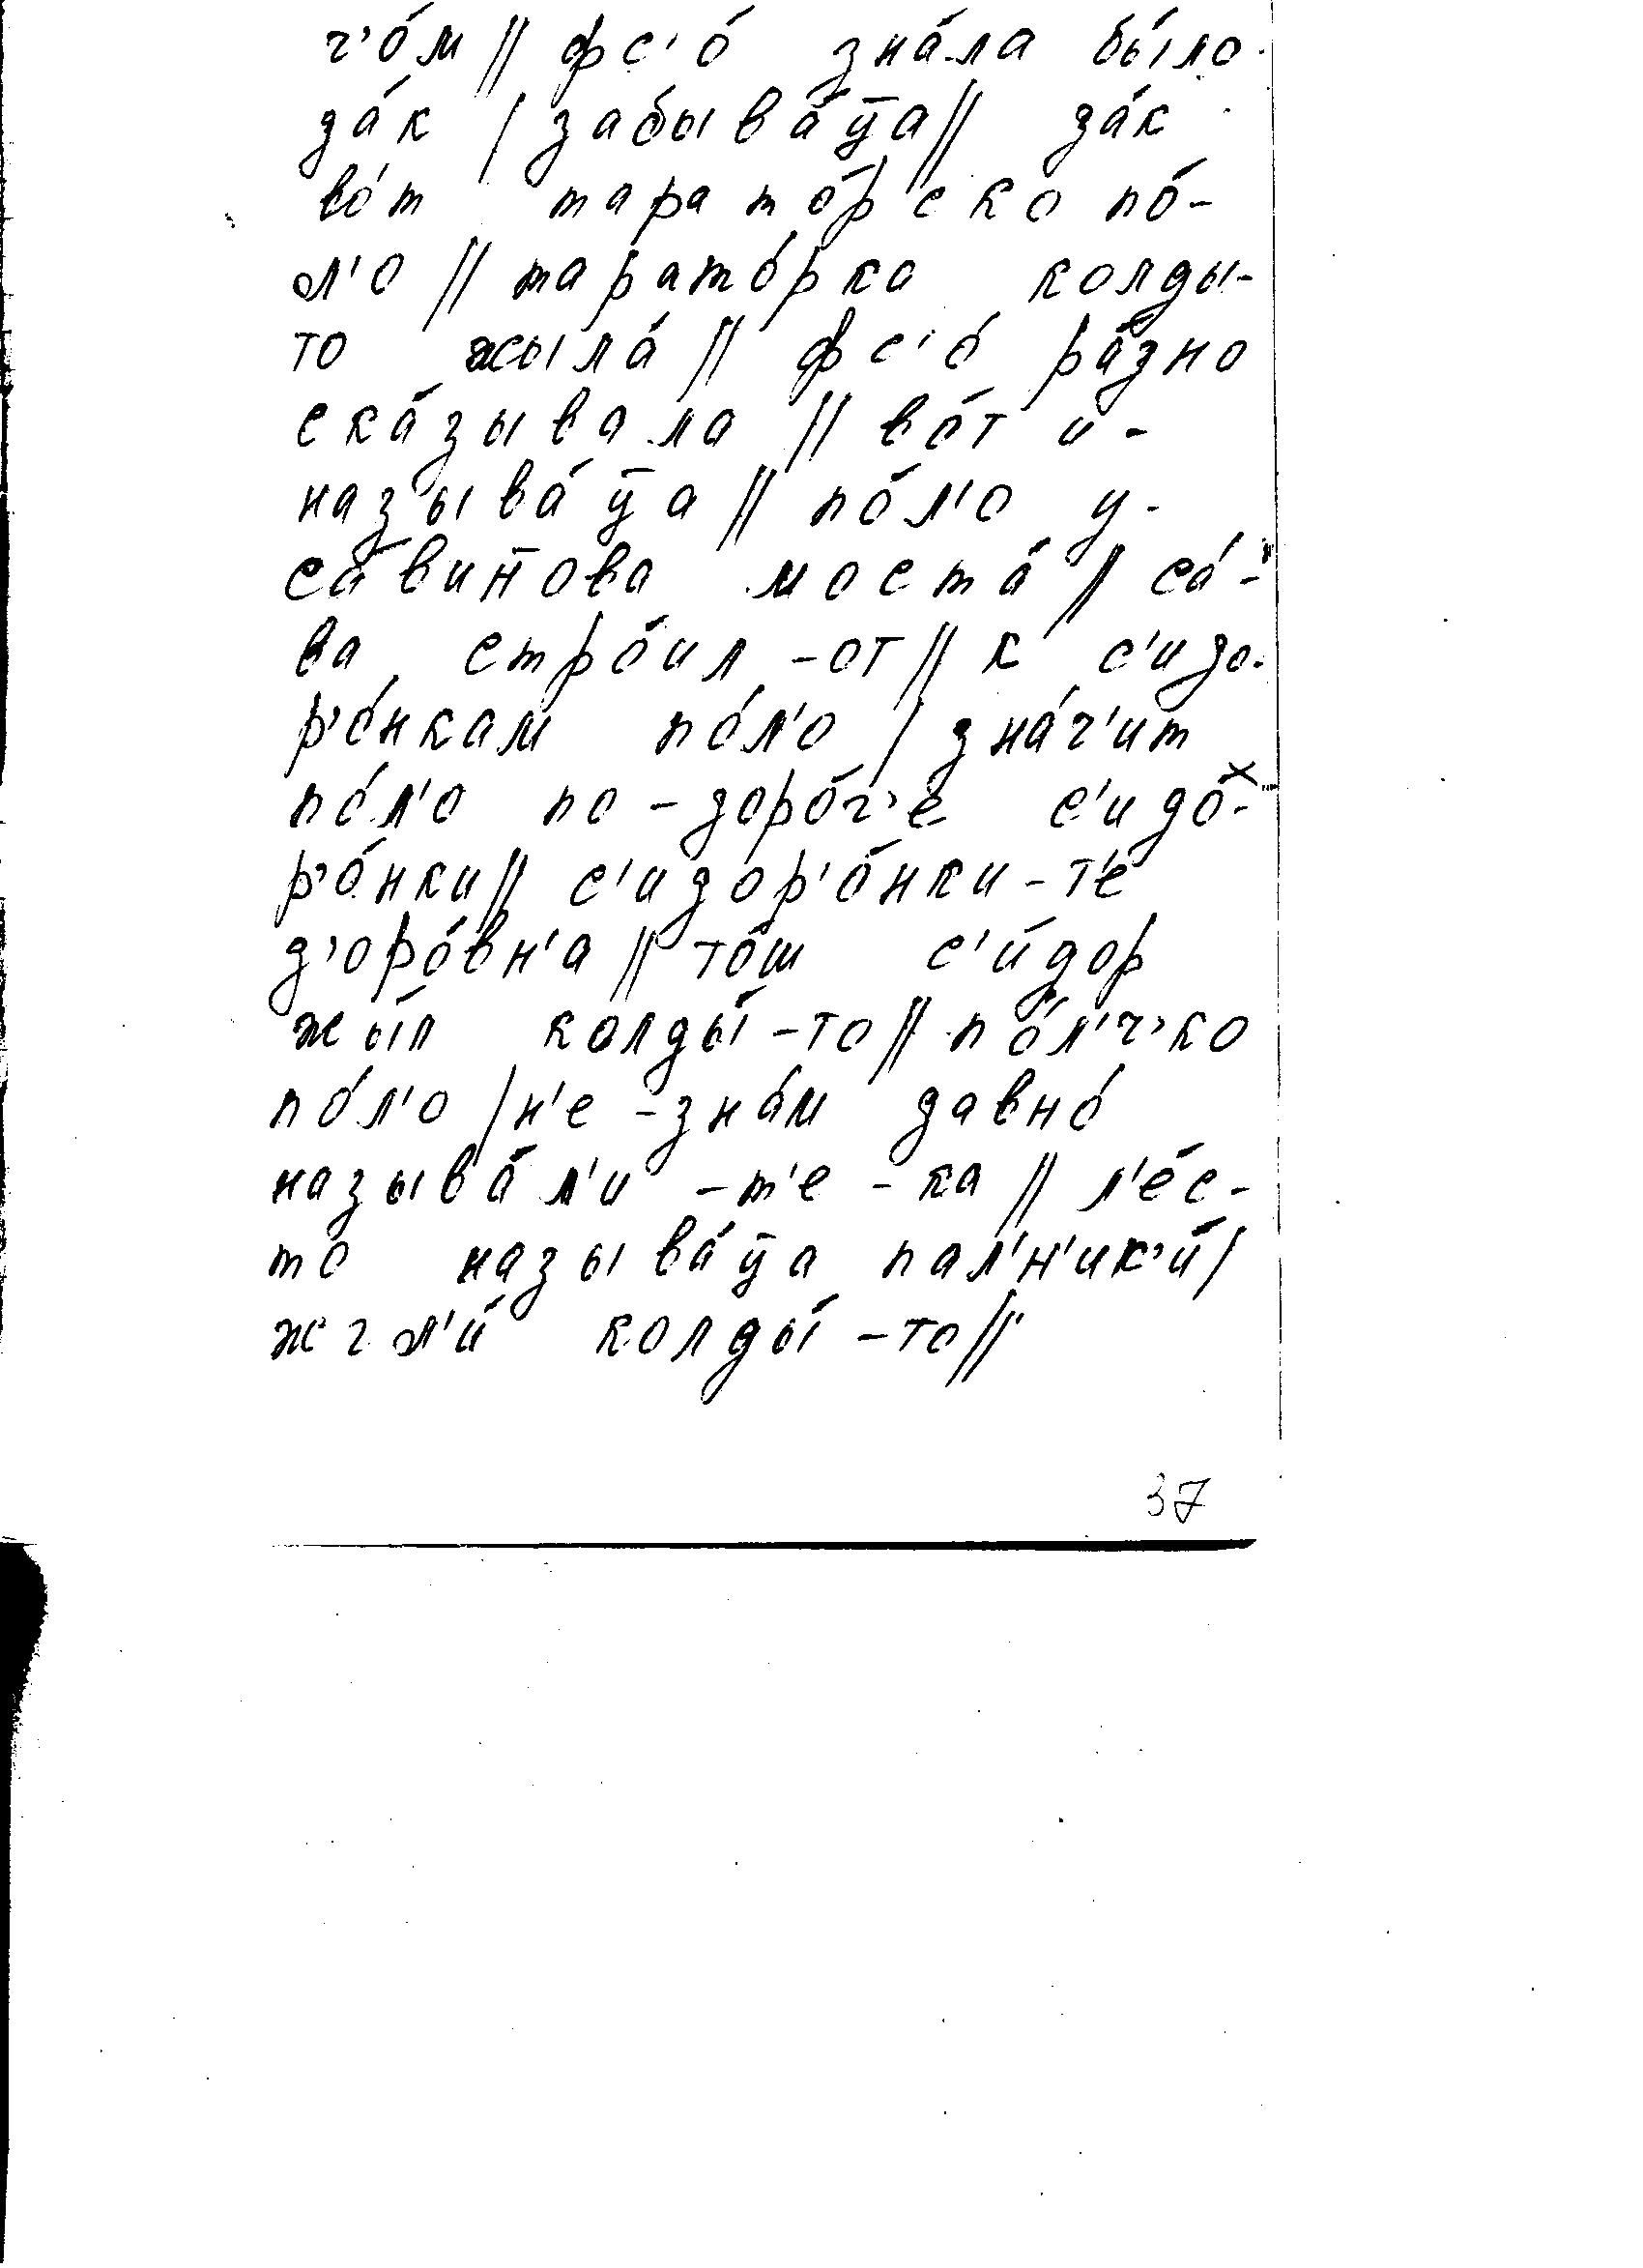 г’о́м || фс’о́ зна́ла бы́ло
да́к | забыва́ц̄а || да́к
во́т тарато́рско по́-
л’о || тарато́рка колды-
то жыла́ || фс’о́ ра́зно
ска́зывала || во́т и-
называ́ц̄а || по́л’о у-
са́вин̄ова моста́ || са́-
ва стро́ил -от || к с’идо-
р’о́нкам по́л’о | зна́ч’ит
по́л’о по -доро́г’е с’идо́-
р’о́нки || с’идор’о́нки -т’е
д’оро́вн’а || то́ш с’и́дор
жы́л колды́ -то || по́л’ч’ко
по́л’о | н’е -зна́м давно́
называ́л’и -т’е -ка || л’е́с-
то называ́ц̄а пал’н’ик’и́ |
жгл’и́ колды́ -то ||
37